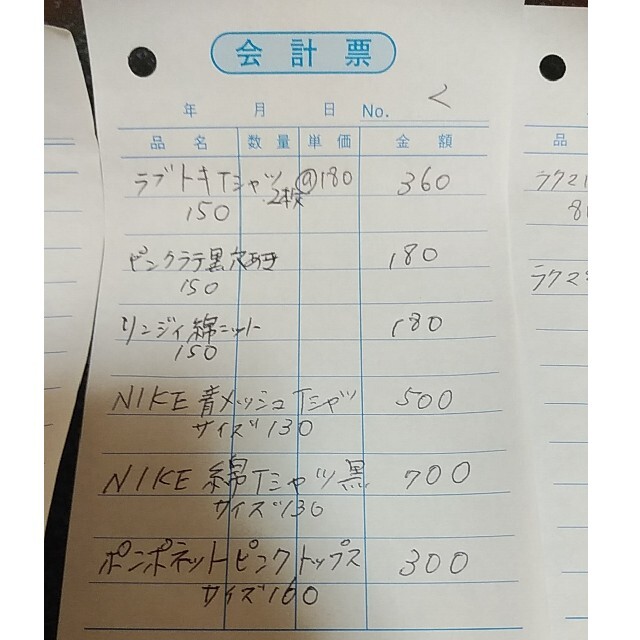 会計票
年 月 日 No. く
品名 数量 単価 金額
ラブトキTシャツ @180 360
2枚
150
ピンクラテ黒穴あき 180
150
リンジィ綿ニット 180
150
NIKE青メッシュTシャツ 500
サイズ130
NIKE 綿Tシャツ黒 700
サイズ130
ポンポネットピンクトップス 300
サイズ160
品
ラクマ
8
ラクマ